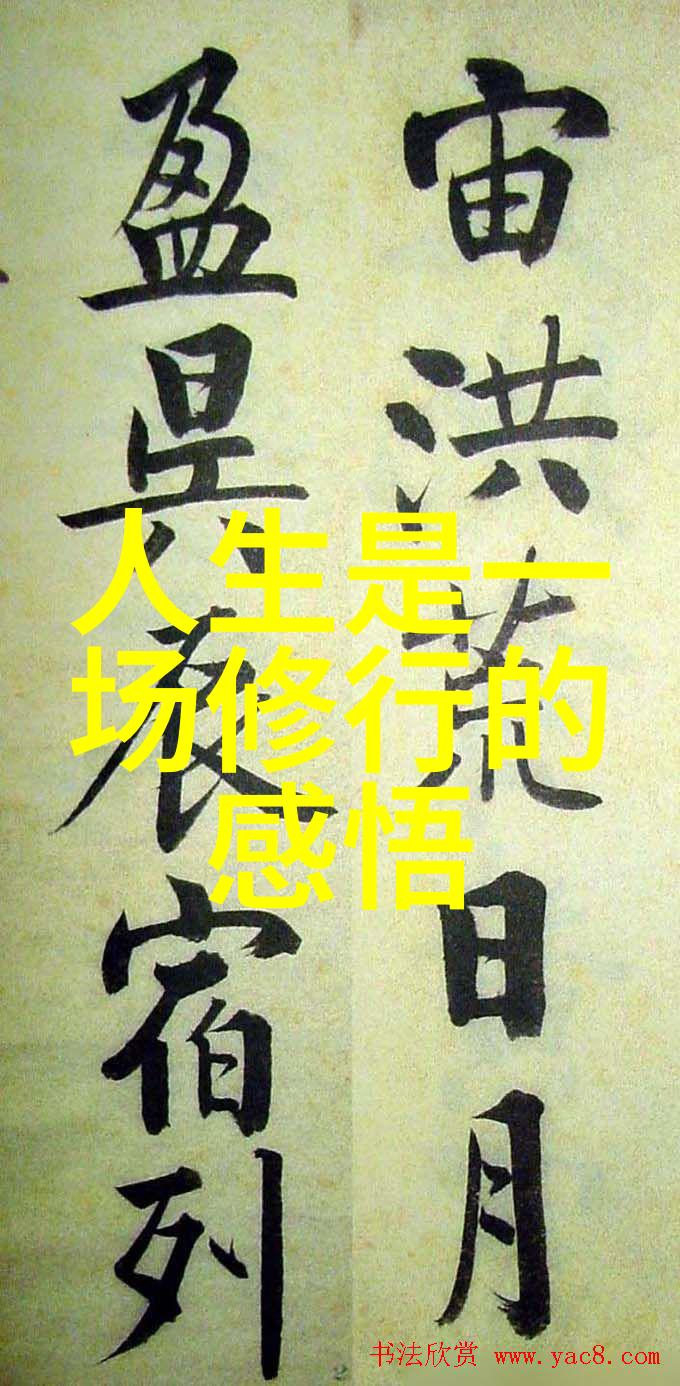 宙洪荒日月
盈昃辰宿列
人生是一
场修行的
感悟
书法欣赏 www.yac8.com